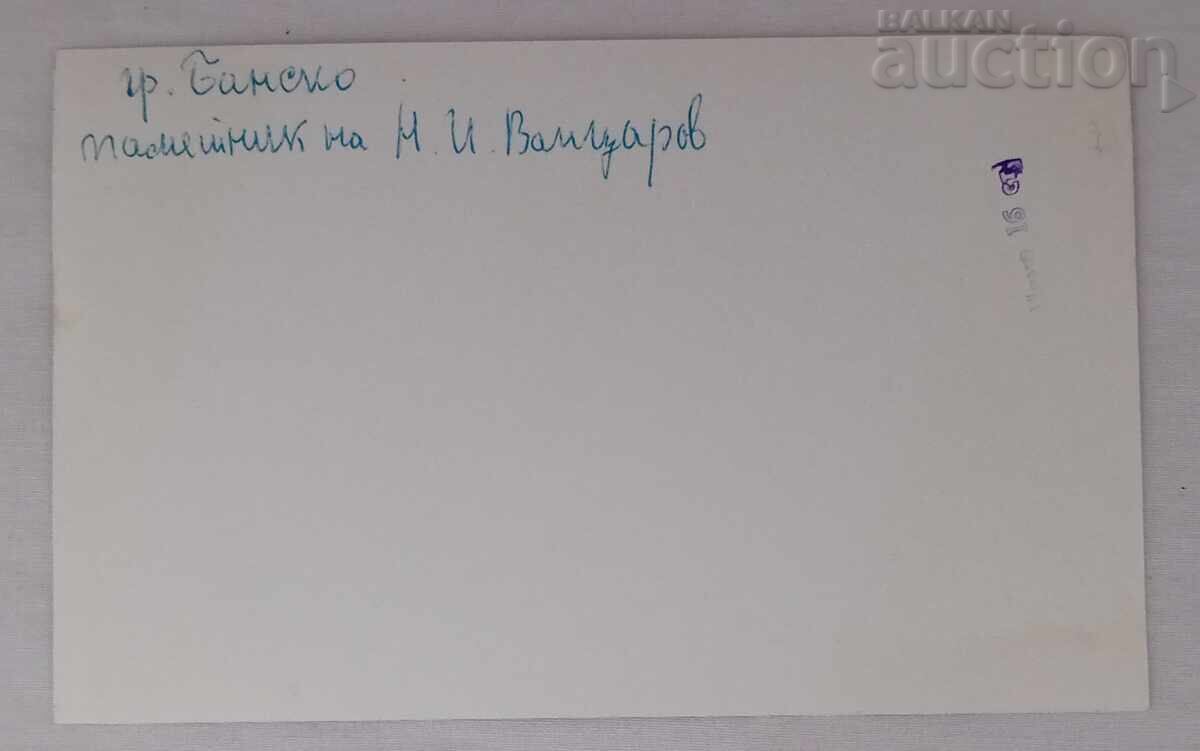 BALKAN
auction
гр. Банско
паметник на Н. И. Вапцаров